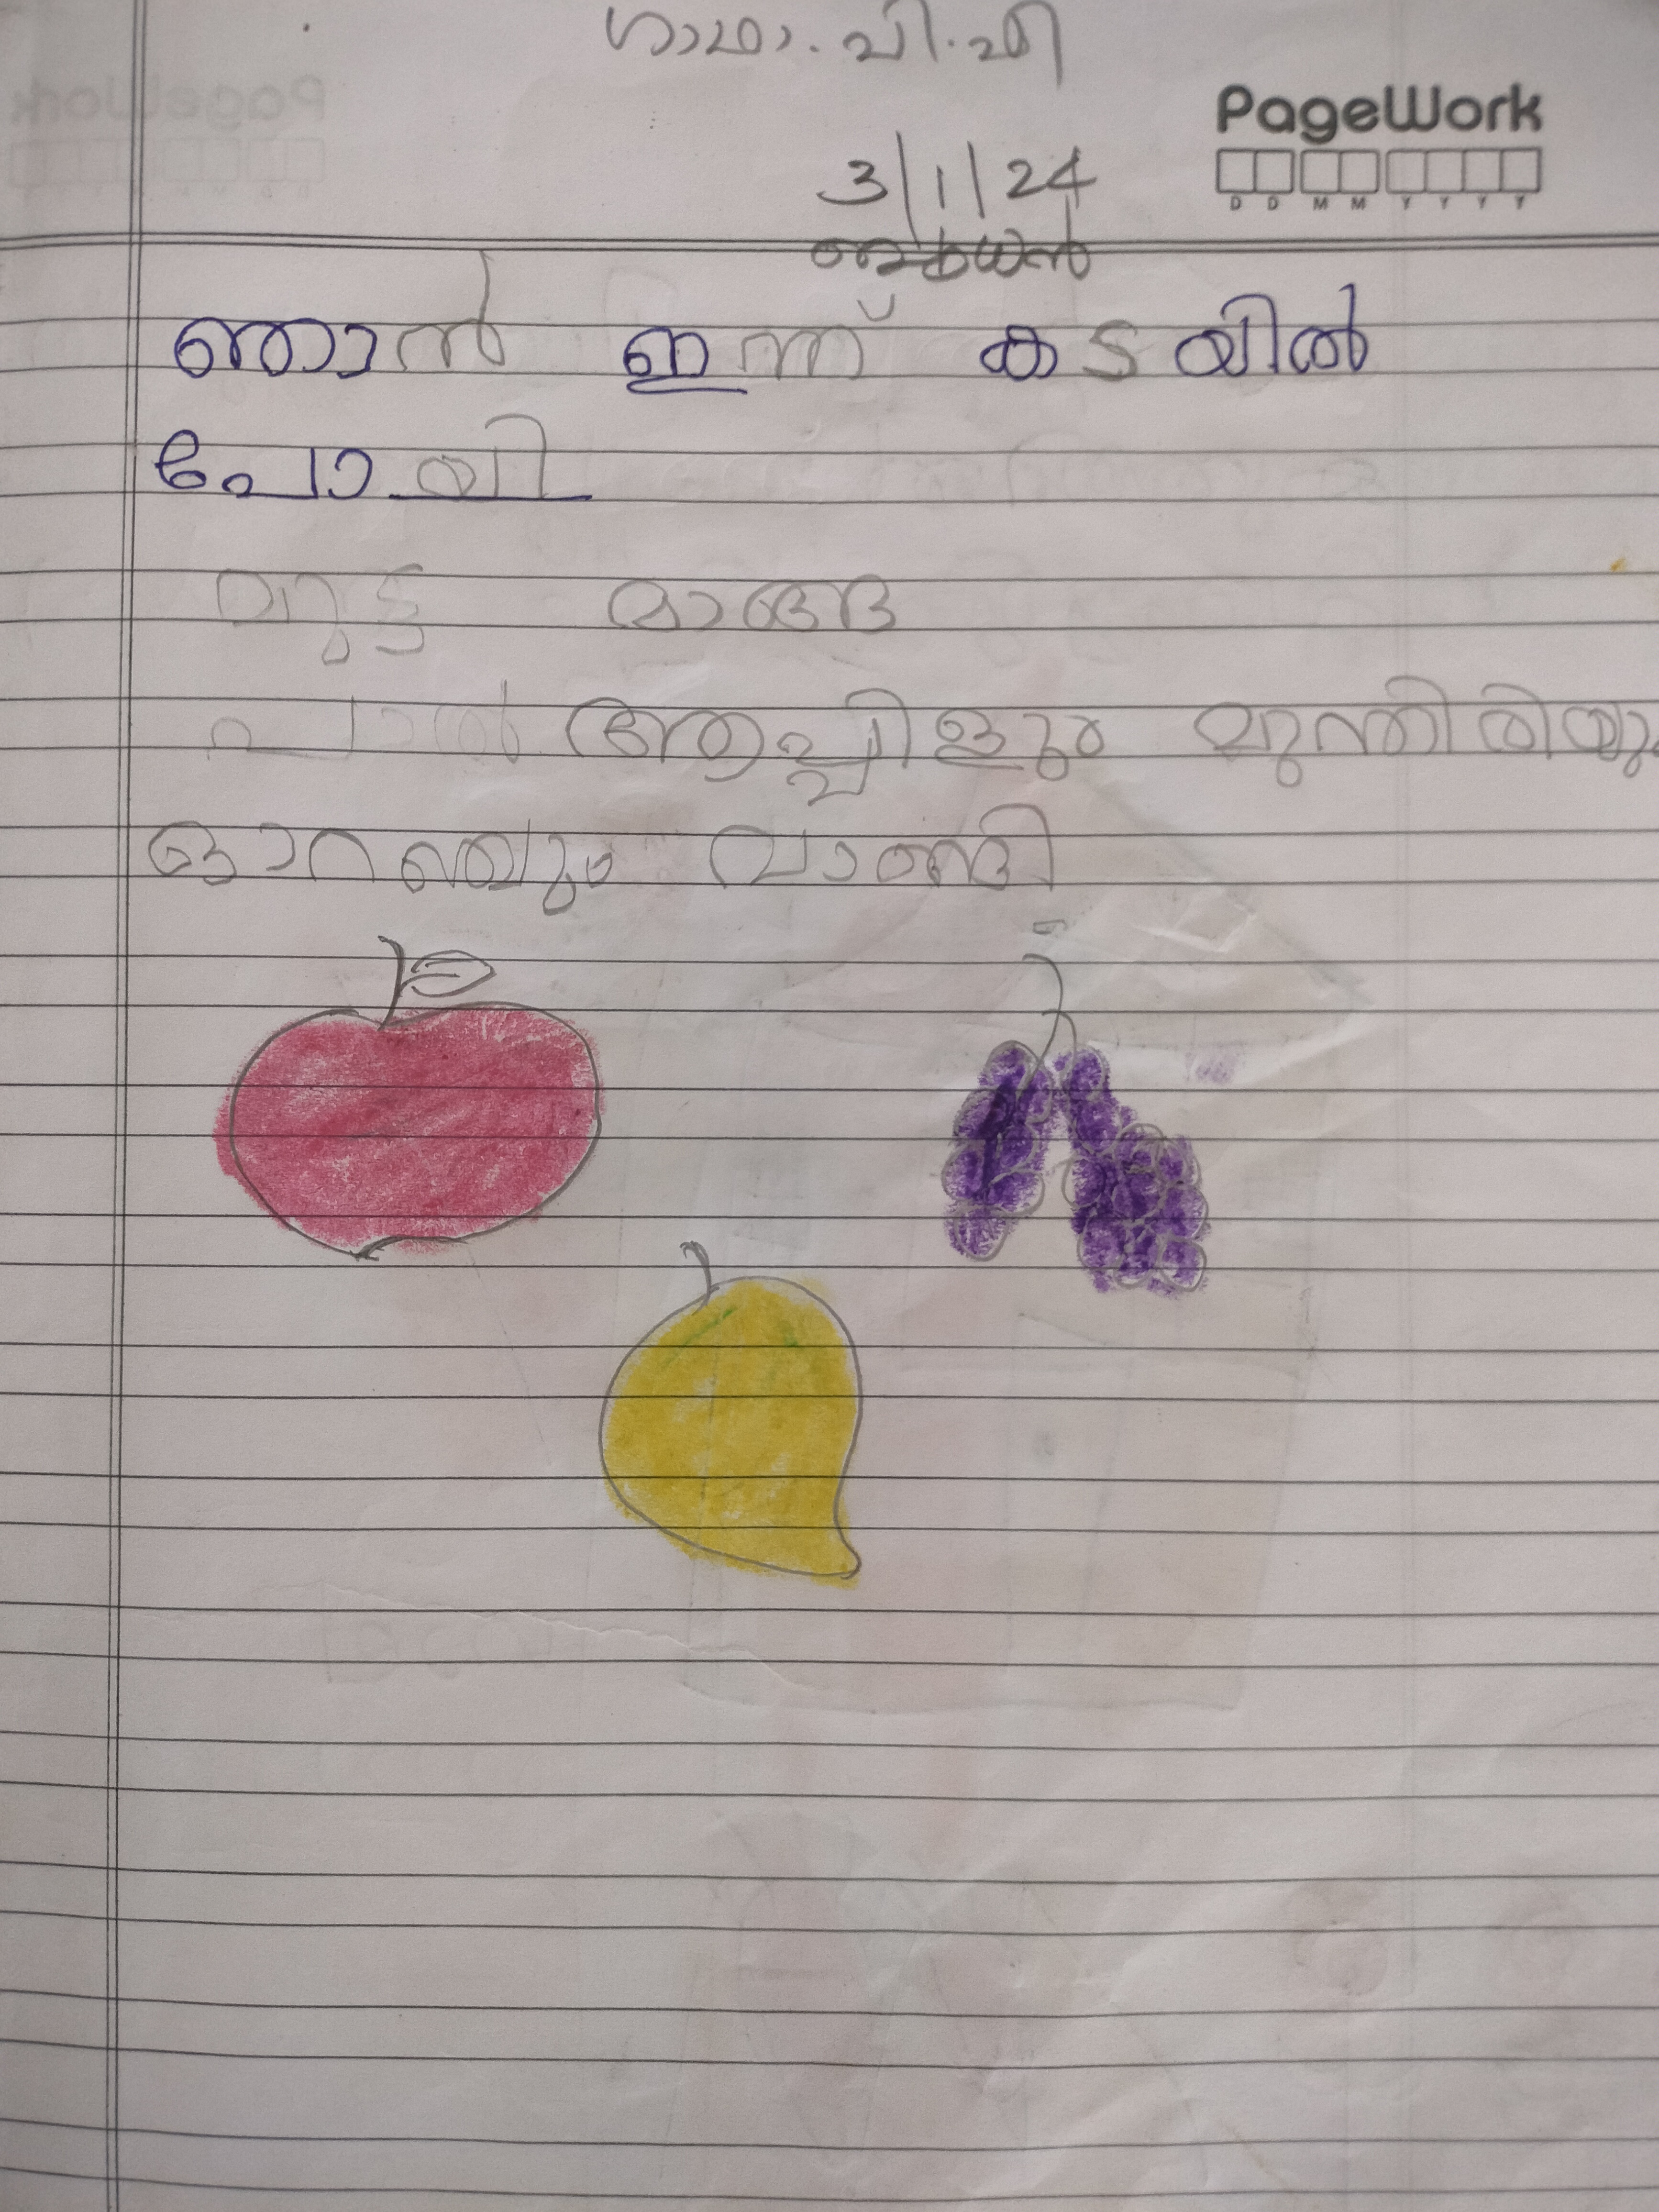 PageWork
3/1/24
D D M M Y Y Y Y
ബുധൻ
ഞാൻ ഇന്ന് കടയിൽ
പോയി
മുട്ട മാങ്ങ
പാൽ ആപ്പിളും മുന്തിരിയും
ഓറഞ്ചും വാങ്ങി